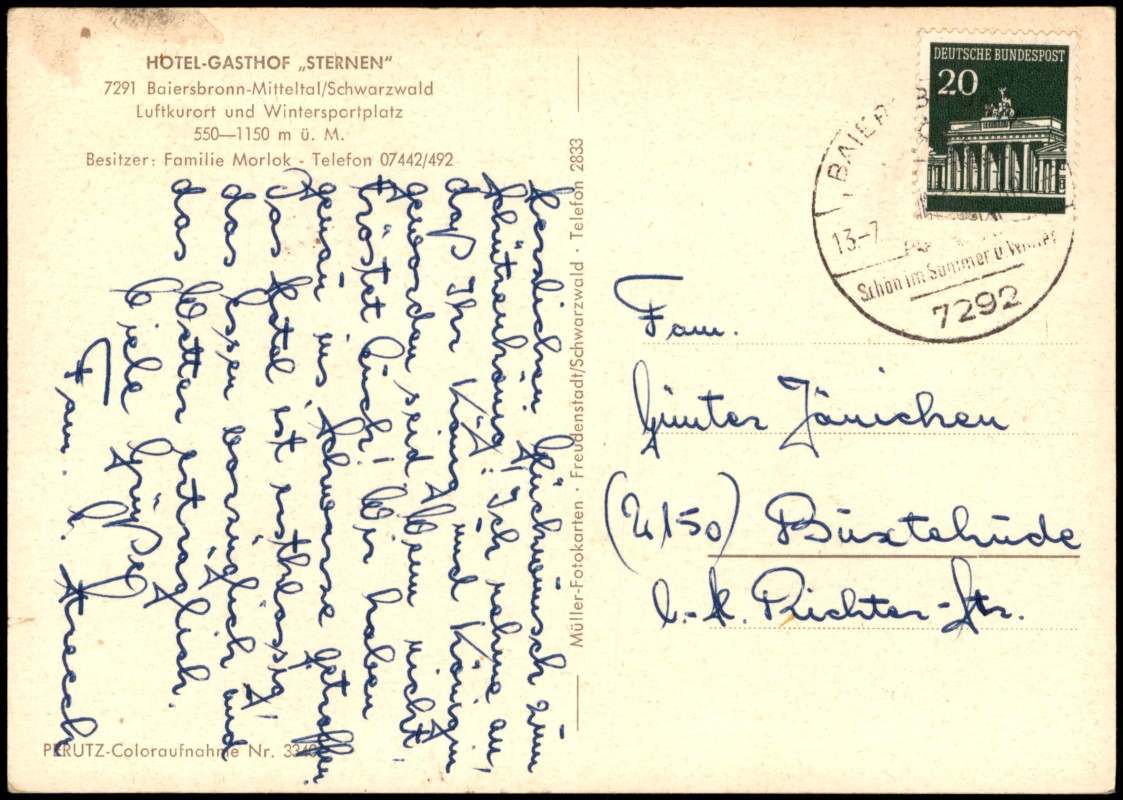 HOTEL-GASTHOF „STERNEN"
7291 Baiersbronn-Mitteltal/Schwarzwald
Luftkurort und Wintersportplatz
550—1150 m ü. M.
Besitzer: Familie Morlok - Telefon 07442/492
Herzlichen Glückwunsch zum
Schützenkönig. Ich nehme an,
daß Ihr König und Königin
geworden seid. Wenn nicht
tröstet Euch! Wir haben
genau ins Schwarze getroffen.
Das Hotel ist erstklassig,
das Essen vorzüglich und
das Wetter erträglich.
Viele Grüße
Fam.
PERUTZ-Coloraufnahme Nr.
Müller-Fotokarten · Freudenstadt/Schwarzwald · Telefon 2833
DEUTSCHE BUNDESPOST
20
BAIER
13.-7
Schön im Sommer u. Winter
7292
Fam.
Günter Jänichen
(2150) Buxtehude
Richter-Str.